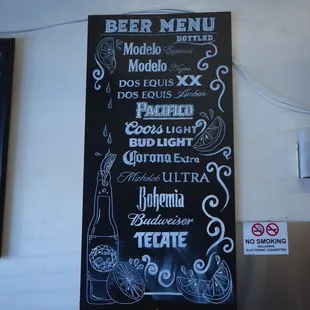 BEER MENU
BOTTLED
Modelo Especial
Modelo Negra
DOS EQUIS XX
DOS EQUIS Ambar
Pacifico
Coors LIGHT
BUD LIGHT
Corona Extra
Michelob ULTRA
Bohemia
Budweiser
TECATE
NO SMOKING
INCLUDING
ELECTRONIC CIGARETTES